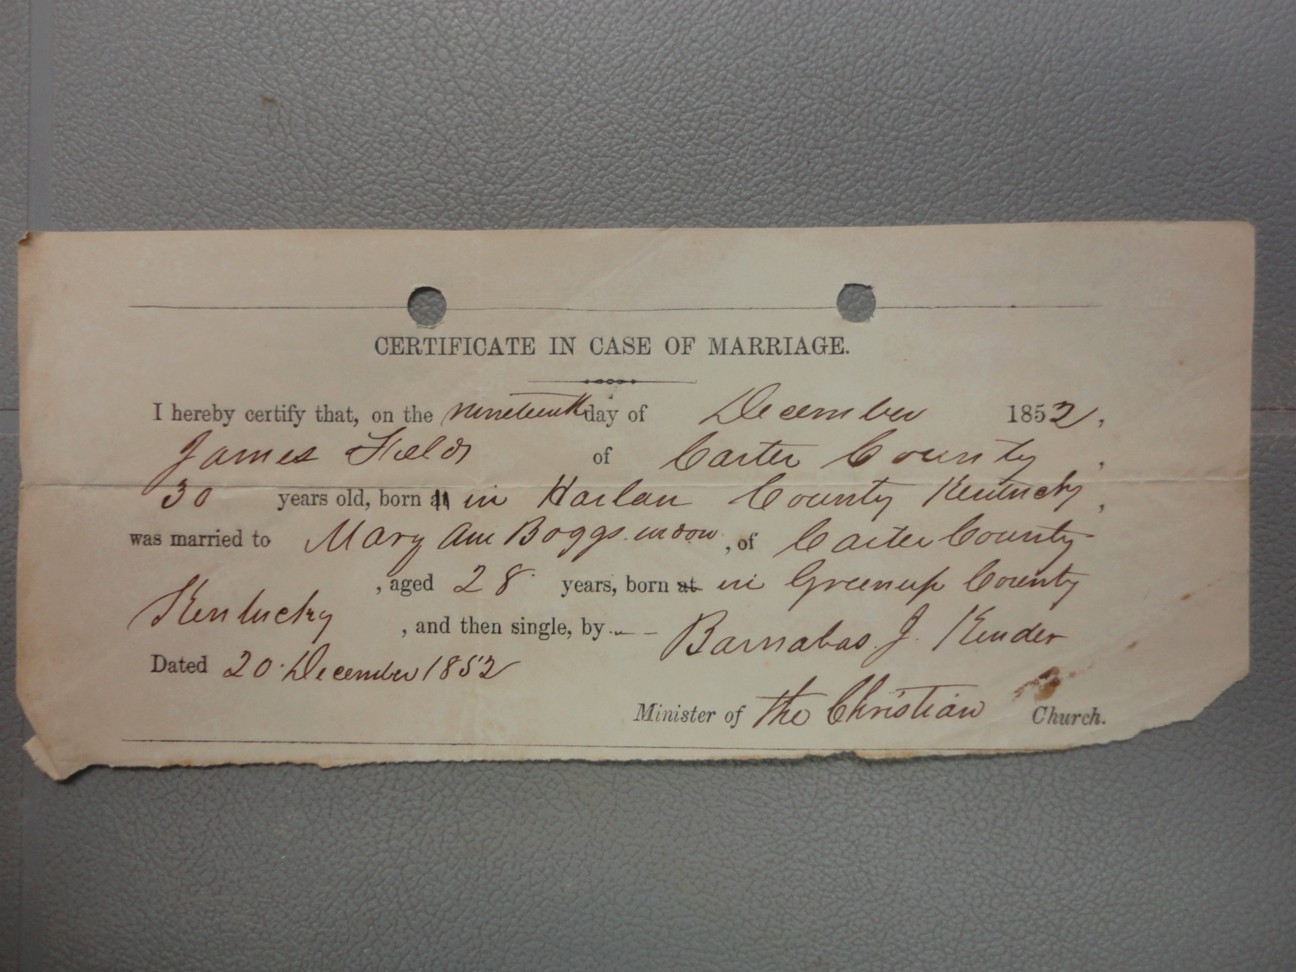 CERTIFICATE IN CASE OF MARRIAGE.
I hereby certify that, on the nineteenth day of December 1852,
James Fields of Carter County,
30 years old, born at in Harlan County Kentucky,
was married to Mary Ann Boggs widow, of Carter County
, aged 28 years, born at in Greenup County
Kentucky, and then single, by - - Barnabas. J. Kinder
Dated 20. December 1852
Minister of the Christian Church.